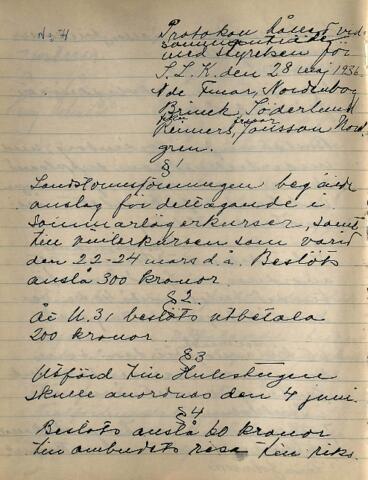 No 4
Protokoll hållet vid
sammanträde
med styrelsen för
S.L.K. den 28 maj 1936.
Nde Furar, Nordenbog
Brinck, Söderlund
Reimers, fruar Jonsson Nord
gren.
§ 1
Landstormsföreningen begärde
anslag för deltagande i
Sommarlägerkurser, samt
till vinterkursen som varit
den 22-24 mars d.å. Beslöts
anslå 300 kronor.
§ 2.
Åt U.31 beslöts utbetala
200 kronor.
§ 3
Utfärd till Hulestugan
skulle anordnas den 4 juni.
§ 4
Beslöts anslå 60 kronor
till ombudets resa till riks.